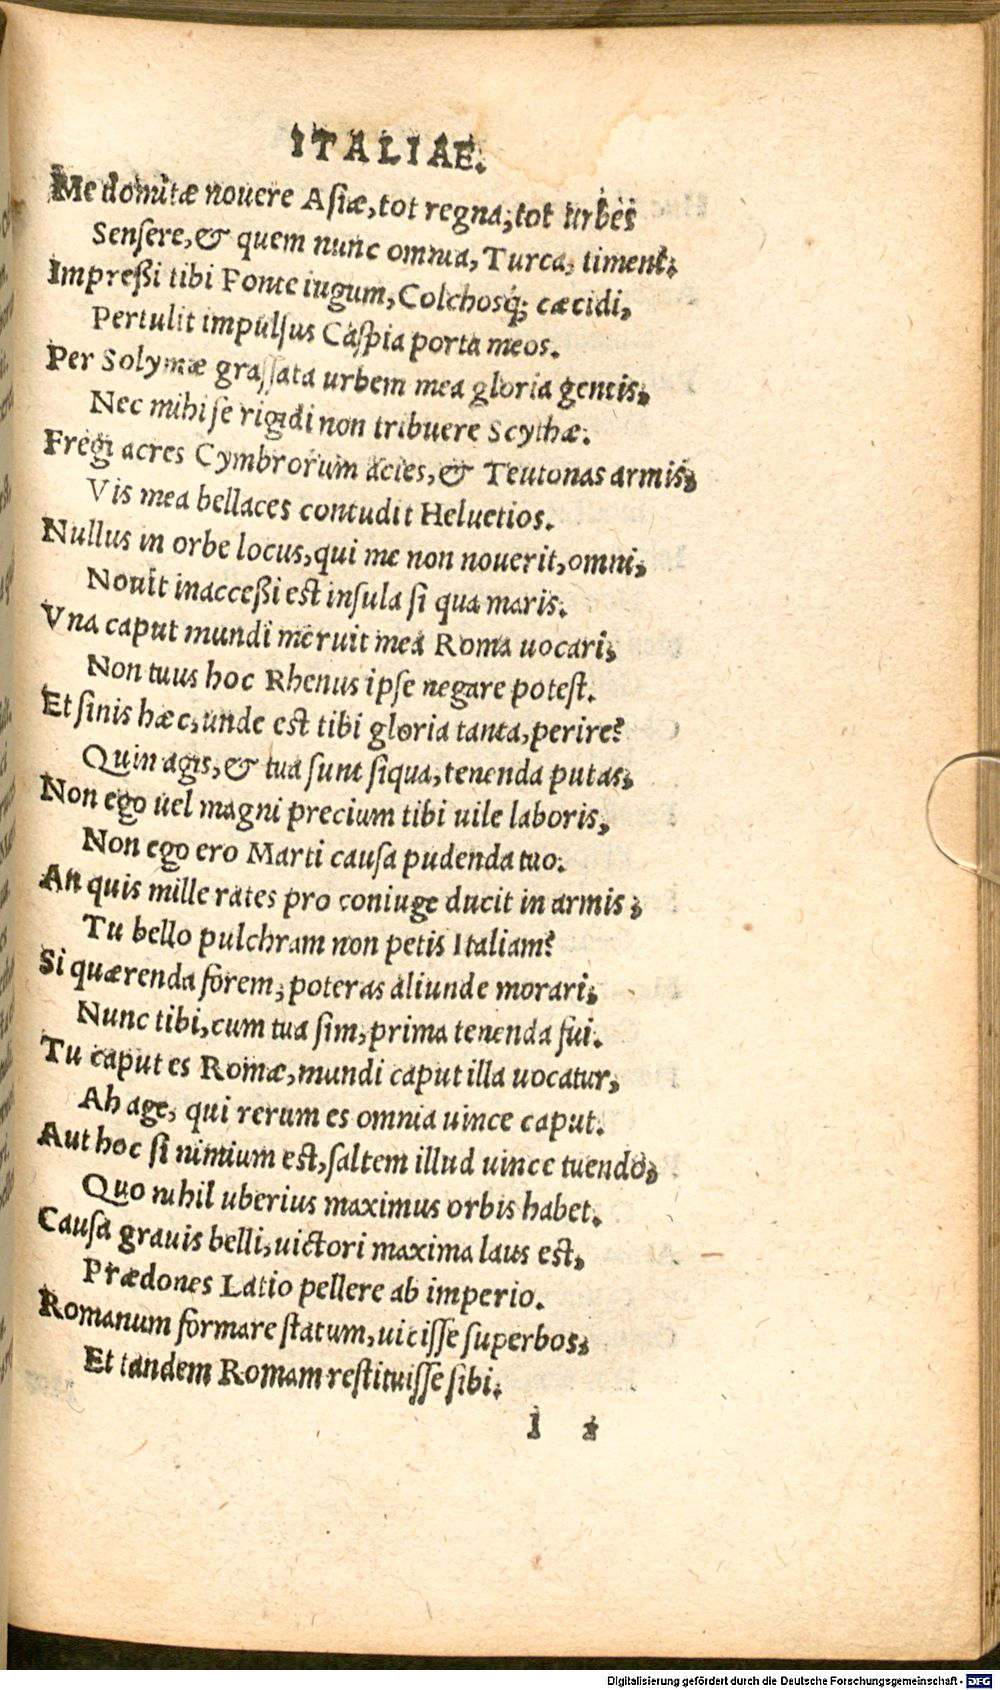 ITALIAE.
Me domitæ nouere Asiæ, tot regna, tot urbes
Sensere, & quem nunc omnia, Turca, timent.
Impreßi tibi Ponte iugum, Colchosq; cæcidi,
Pertulit impulsus Caspia porta meos.
Per Solymæ grassata urbem mea gloria gentis,
Nec mihi se rigidi non tribuere Scythæ.
Fregi acres Cymbrorum acies, & Teutonas armis,
Vis mea bellaces contudit Heluetios.
Nullus in orbe locus, qui me non nouerit, omni,
Nouit inacceßi est insula si qua maris.
Vna caput mundi meruit mea Roma uocari,
Non tuus hoc Rhenus ipse negare potest.
Et sinis hæc, unde est tibi gloria tanta, perire?
Quin agis, & tua sunt siqua, tenenda putas,
Non ego uel magni precium tibi uile laboris,
Non ego ero Marti causa pudenda tuo.
An quis mille rates pro coniuge ducit in armis,
Tu bello pulchram non petis Italiam?
Si quærenda forem, poteras aliunde morari,
Nunc tibi, cum tua sim, prima tenenda fui.
Tu caput es Romæ, mundi caput illa uocatur,
Ah age, qui rerum es omnia uince caput.
Aut hoc si nimium est, saltem illud uince tuendo,
Quo nihil uberius maximus orbis habet.
Causa grauis belli, uictori maxima laus est,
Prædones Latio pellere ab imperio.
Romanum formare statum, uicisse superbos,
Et tandem Romam restituisse sibi.
I 1
Digitalisierung gefördert durch die Deutsche Forschungsgemeinschaft - DFG